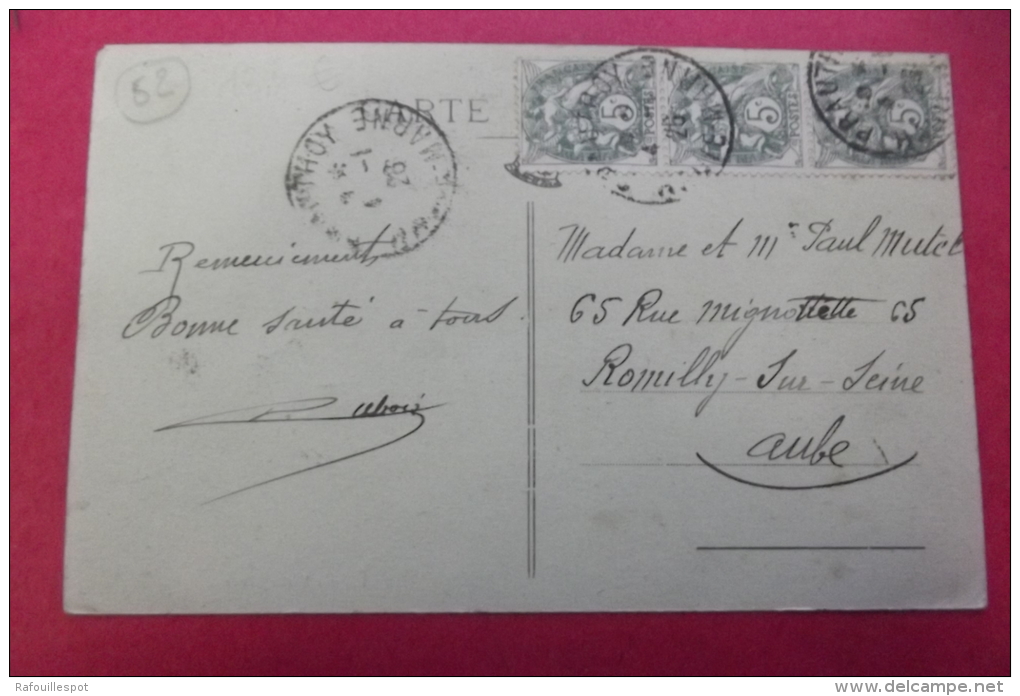 52
CARTE
5c
5c
5c
POSTES
PRAUTHOY
HTE MARNE
Remerciements
Bonne santé à tous.
Dubois
Madame et Mr Paul Mutel
65 Rue Mignottette 65
Romilly-Sur-Seine
Aube
Rafouillespot